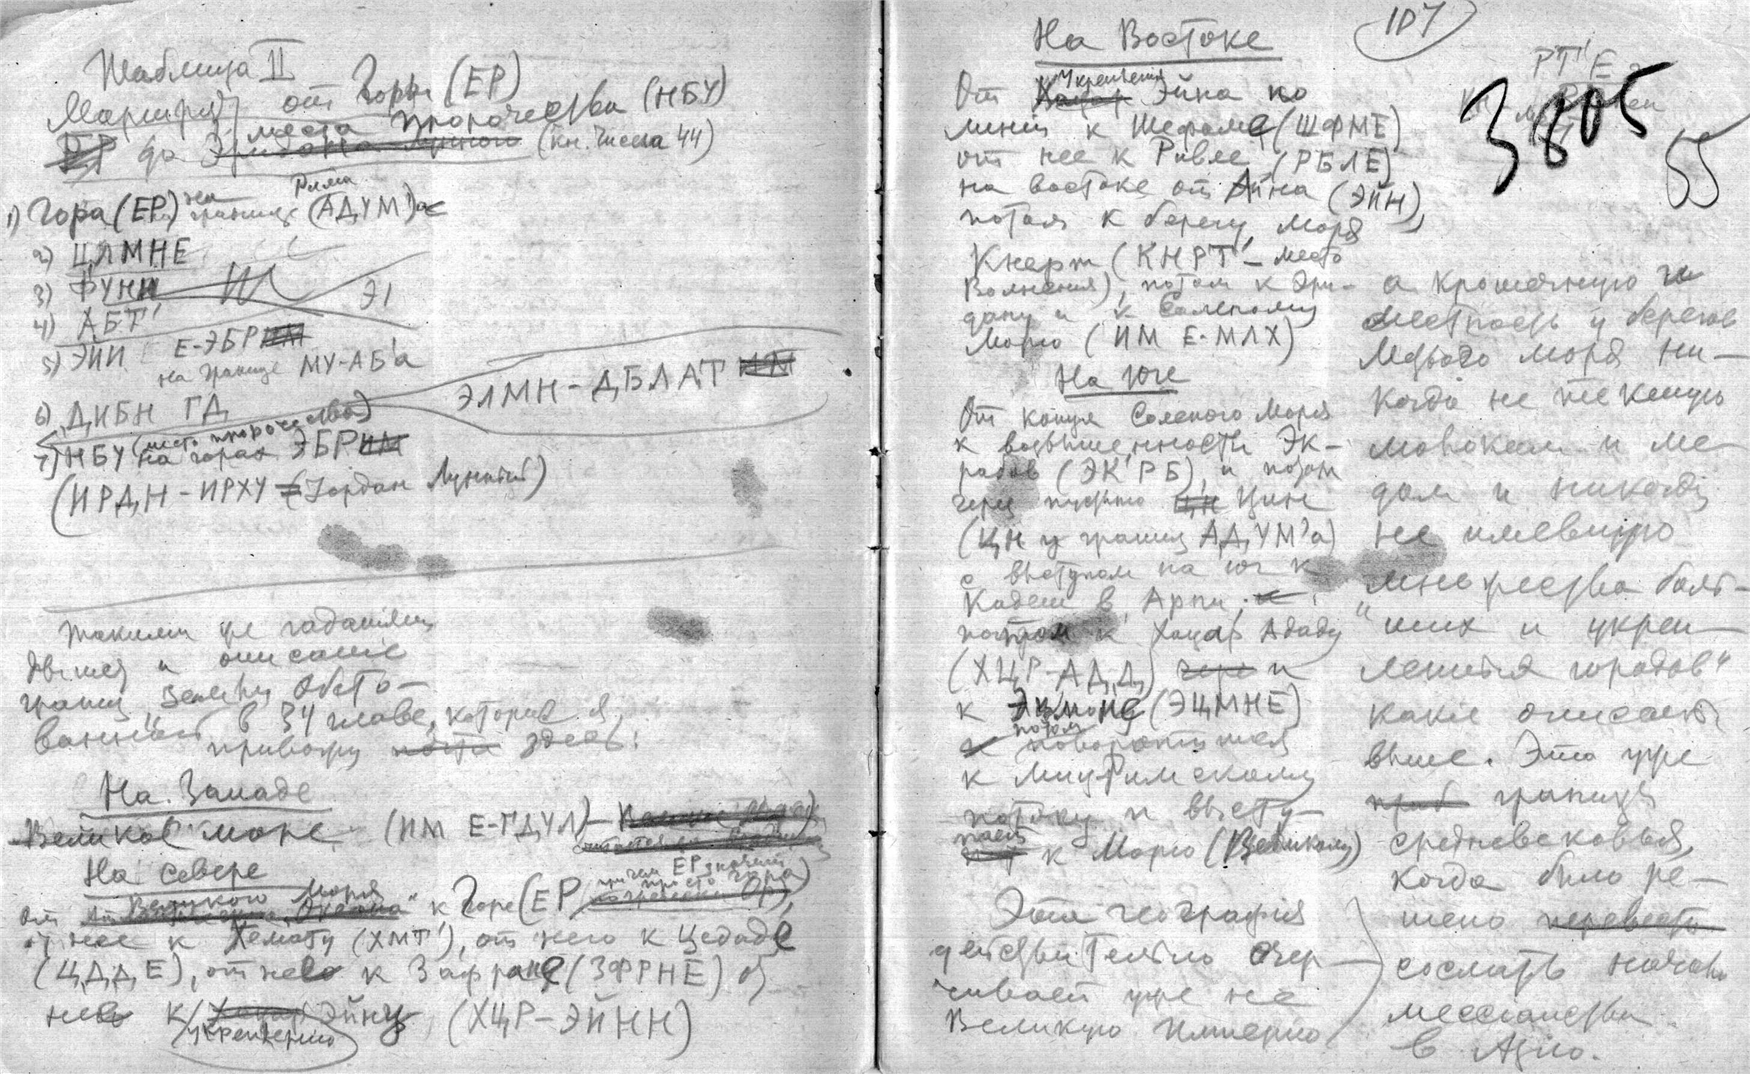 Таблица II
Маршрут от Горы (ЕР)
до места пророчества (НБУ)
(кн. Числа 44)
1) Гора (ЕР) на границе Рима (АДУМ'а
2) ЦЛМНЕ
3) ФУНН
4) АБТ'
5) ЭЙИ Е-ЭБР
на границе МУ-АБ'а
6) ДИБН ГД
ЭЛМН-ДБЛАТ
7) НБУ (место пророчества)
на горах ЭБР
(ИРДН-ИРХУ = Иордан Лунный)
Такими же гаданиями
и описание
границ земли Обето-
ванной в 34 главе, которые я
привожу здесь:
На Западе
Великое море (ИМ Е-ГДУЛ)
На севере
От Великого моря к Горе (ЕР причем ЕР значит просто гора)
от нее к Хемату (ХМТ'), от него к Цедаде
(ЦДДЕ), от нее к Зафране (ЗФРНЕ) от
нее к укреплению Эйну (ХЦР-ЭЙНН)
107
На Востоке
От укрепления Эйна по
линии к Шефаме (ШФМЕ)
от нее к Ривле (РБЛЕ)
на востоке от Айна (ЭЙН),
потом к берегу моря
Кнерт (КНРТ' - место
волнения), потом к Эри-
дану и к Соленому
морю (ИМ Е-МЛХ)
На юге
От конца Соленого моря
к возвышенности Эк-
рабов (ЭК'РБ), и потом
через пустыню Цин
(ЦН у границ АДУМ'а)
с выступом на юг к
Кадеш в
потом к Хацар Ададу
(ХЦР-АДД) и
к Эцмоне (ЭЦМНЕ)
потом поворотится
к Миц-Римскому
потоку и высту-
пает к Морю (Великому)
Эта география
действительно очер-
чивает уже не
Великую Империю
РТ'Е
3805
55
а крошечную
местность у берегов
Мертвого моря ни-
когда не текшую
молоком и ме-
дом и никогда
не имевшую
множества боль-
"ших и укреп-
ленных городов"
какие описаны
выше. Это уже
граница
средневековья,
когда было ре-
шено
сослать начало
мессианства
в Азию.